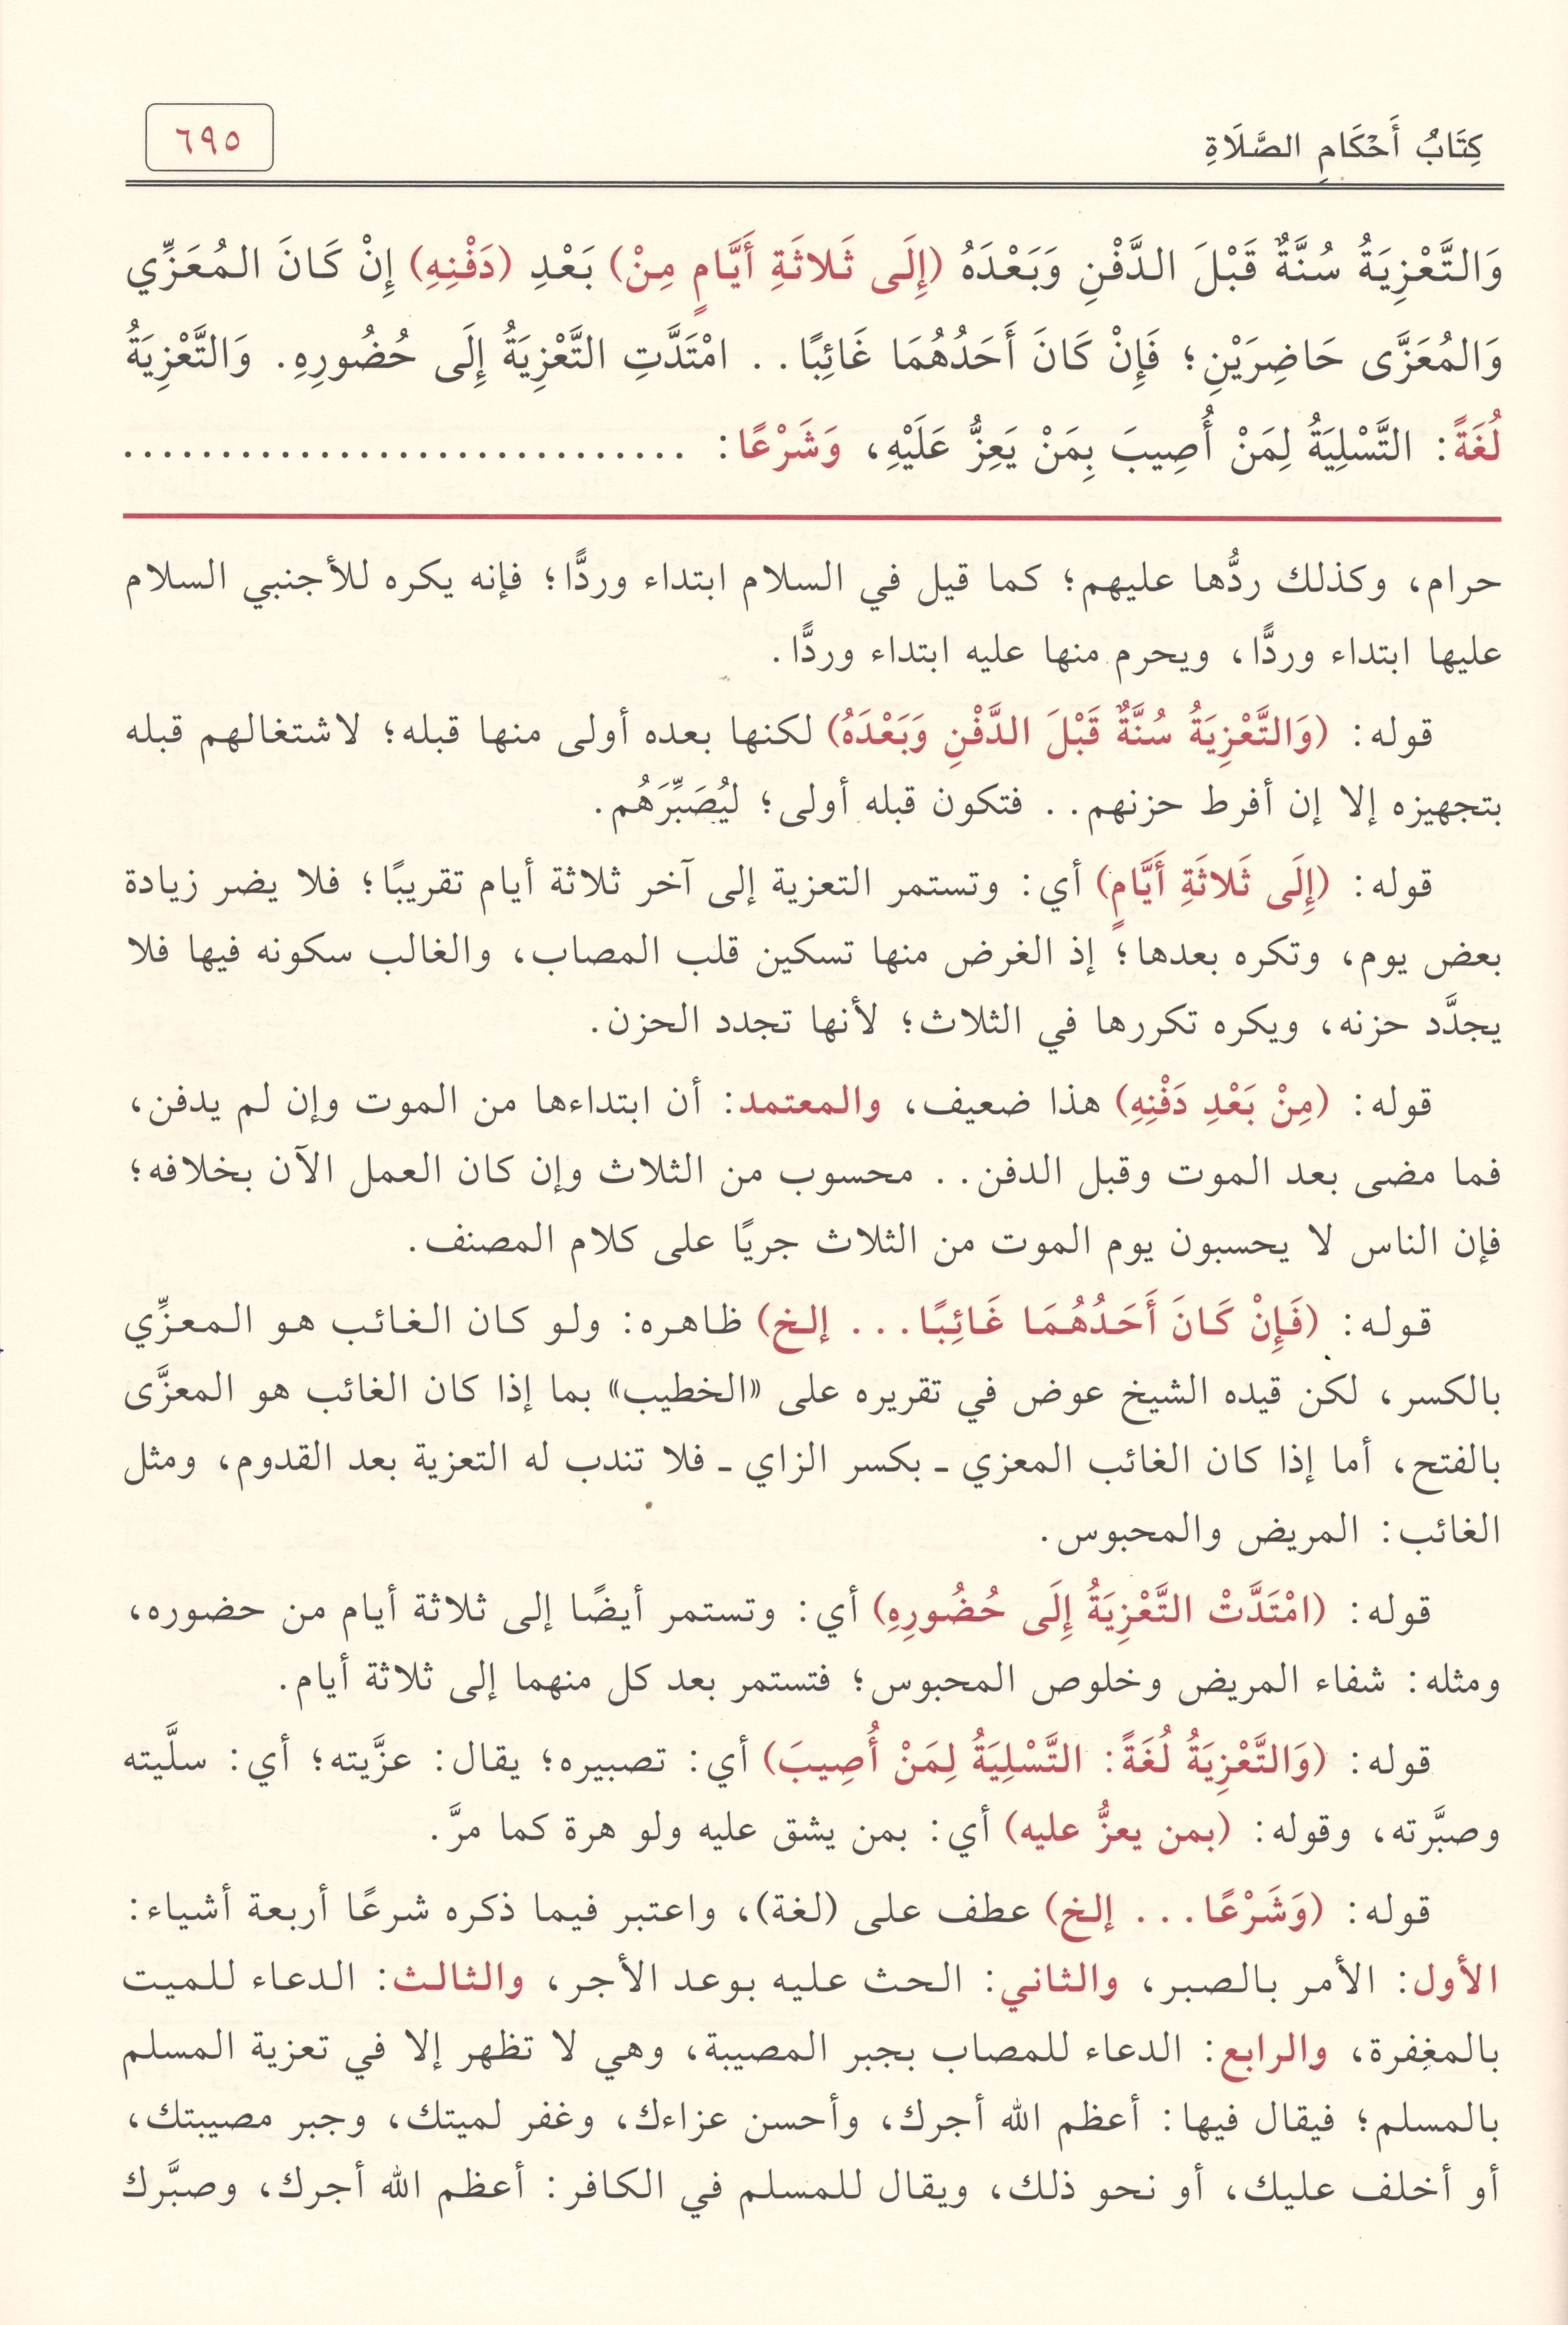 كِتَابُ أَحْكَامِ الصَّلَاةِ
٦٩٥
وَالتَّعْزِيَةُ سُنَّةٌ قَبْلَ الدَّفْنِ وَبَعْدَهُ (إِلَى ثَلاثَةِ أَيَّامٍ مِنْ) بَعْدِ (دَفْنِهِ) إِنْ كَانَ المُعَزِّي
وَالمُعَزَّى حَاضِرَيْنِ؛ فَإِنْ كَانَ أَحَدُهُمَا غَائِبًا.. امْتَدَّتِ التَّعْزِيَةُ إِلَى حُضُورِهِ. وَالتَّعْزِيَةُ
لُغَةً: التَّسْلِيَةُ لِمَنْ أُصِيبَ بِمَنْ يَعِزُّ عَلَيْهِ، وَشَرْعًا: ..............................
حرام، وكذلك ردُّها عليهم؛ كما قيل في السلام ابتداء وردًّا؛ فإنه يكره للأجنبي السلام
عليها ابتداء وردًّا، ويحرم منها عليه ابتداء وردًّا.
قوله: (وَالتَّعْزِيَةُ سُنَّةٌ قَبْلَ الدَّفْنِ وَبَعْدَهُ) لكنها بعده أولى منها قبله؛ لاشتغالهم قبله
بتجهيزه إلا إن أفرط حزنهم.. فتكون قبله أولى؛ ليُصَبِّرَهُم.
قوله: (إِلَى ثَلاثَةِ أَيَّامٍ) أي: وتستمر التعزية إلى آخر ثلاثة أيام تقريبًا؛ فلا يضر زيادة
بعض يوم، وتكره بعدها؛ إذ الغرض منها تسكين قلب المصاب، والغالب سكونه فيها فلا
يجدَّد حزنه، ويكره تكررها في الثلاث؛ لأنها تجدد الحزن.
قوله: (مِنْ بَعْدِ دَفْنِهِ) هذا ضعيف، والمعتمد: أن ابتداءها من الموت وإن لم يدفن،
فما مضى بعد الموت وقبل الدفن.. محسوب من الثلاث وإن كان العمل الآن بخلافه؛
فإن الناس لا يحسبون يوم الموت من الثلاث جريًا على كلام المصنف.
قوله: (فَإِنْ كَانَ أَحَدُهُمَا غَائِبًا... إلخ) ظاهره: ولو كان الغائب هو المعزِّي
بالكسر، لكن قيده الشيخ عوض في تقريره على «الخطيب» بما إذا كان الغائب هو المعزَّى
بالفتح، أما إذا كان الغائب المعزي ـ بكسر الزاي ـ فلا تندب له التعزية بعد القدوم، ومثل
الغائب: المريض والمحبوس.
قوله: (امْتَدَّتْ التَّعْزِيَةُ إِلَى حُضُورِهِ) أي: وتستمر أيضًا إلى ثلاثة أيام من حضوره،
ومثله: شفاء المريض وخلوص المحبوس؛ فتستمر بعد كل منهما إلى ثلاثة أيام.
قوله: (وَالتَّعْزِيَةُ لُغَةً: التَّسْلِيَةُ لِمَنْ أُصِيبَ) أي: تصبيره؛ يقال: عزَّيته؛ أي: سلَّيته
وصبَّرته، وقوله: (بمن يعزُّ عليه) أي: بمن يشق عليه ولو هرة كما مرَّ.
قوله: (وَشَرْعًا... إلخ) عطف على (لغة)، واعتبر فيما ذكره شرعًا أربعة أشياء:
الأول: الأمر بالصبر، والثاني: الحث عليه بوعد الأجر، والثالث: الدعاء للميت
بالمغفرة، والرابع: الدعاء للمصاب بجبر المصيبة، وهي لا تظهر إلا في تعزية المسلم
بالمسلم؛ فيقال فيها: أعظم الله أجرك، وأحسن عزاءك، وغفر لميتك، وجبر مصيبتك،
أو أخلف عليك، أو نحو ذلك، ويقال للمسلم في الكافر: أعظم الله أجرك، وصبَّرك